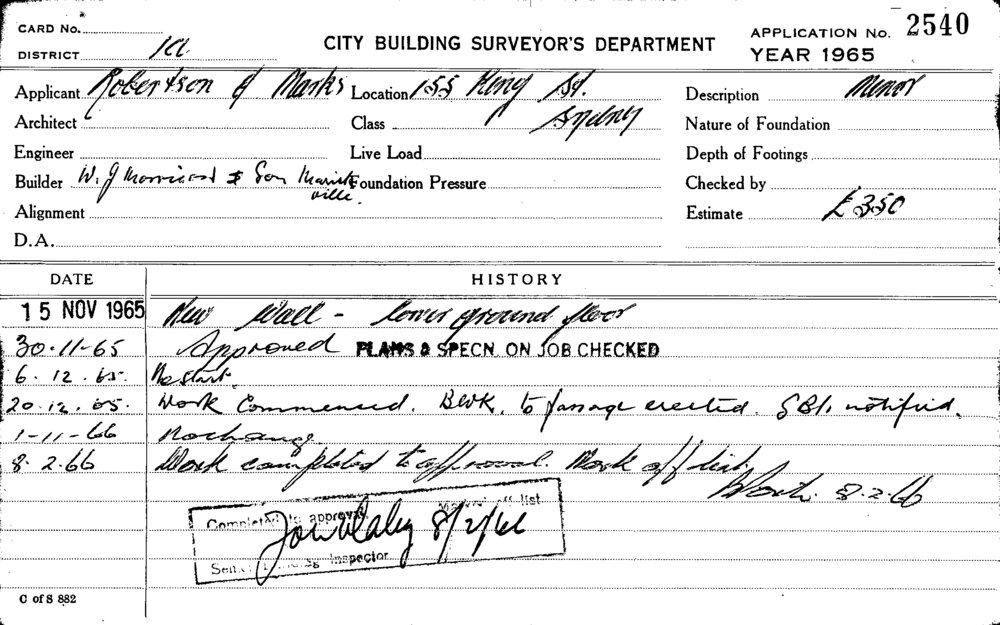 CARD No.
DISTRICT 1A
CITY BUILDING SURVEYOR'S DEPARTMENT
APPLICATION No. 2540
YEAR 1965
Applicant Robertson & Marks Location 155 King St. Description Minor
Architect Class Sydney Nature of Foundation
Engineer Live Load Depth of Footings
Builder W. J & Son Marrickville. Foundation Pressure Checked by
Alignment Estimate £350
D.A.
DATE HISTORY
15 NOV 1965 New Wall - lower ground floor
30-11-65 Approved PLANS & SPECN. ON JOB CHECKED
6.12.65. No start.
20.12.65. Work Commenced. Bwk. to passage erected. notified.
1-11-66 No change
8.2.66 Work completed to approval. Mark off list.
8.2.66
Completed to approval. Mark off list
8/2/66
Senior Building Inspector
C of S 882